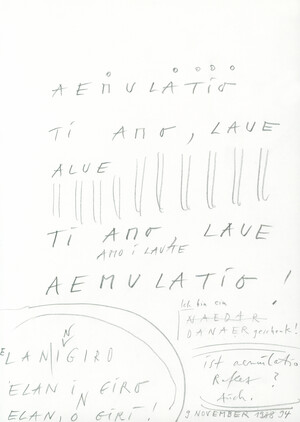 AEMULATIO
TI AMO, LAUE
ALUE
TI AMO, LAUE
AMO i LAUTE
AEMULATIO!
Ich bin ein
DANAERgeschenk!
ELANIGIRO
N
ELAN iN GIRO
ELAN, O GIRI!
ist aemulatio
?
Auch.
9 NOVEMBER 1994